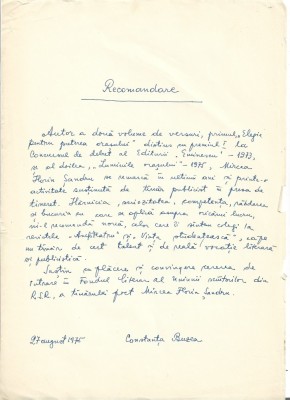 Recomandare
Autor a două volume de versuri, primul „Elegie
pentru puterea orașului" distins cu premiul I la
Concursul de debut al Editurii „Eminescu" - 1973,
și al doilea, „Luminile orașului" - 1975, Mircea
Florin Șandru se remarcă în ultimii ani și printr-o
activitate susținută de tînăr publicist în presa de
tineret. Hărnicia, seriozitatea, competența, răbdarea
și bucuria cu care se apleacă asupra oricărui lucru,
ni-l recomandă nouă, celor care îi sîntem colegi la
revistele „Amfiteatru" și „Viața studențească", ca pe
un tînăr de cert talent și de reală vocație literară
și publicistică.
Susțin cu plăcere și convingere cererea de
intrare în Fondul literar al Uniunii scriitorilor din
R.S.R. a tînărului poet Mircea Florin Șandru.
27 august 1975 Constanța Buzea